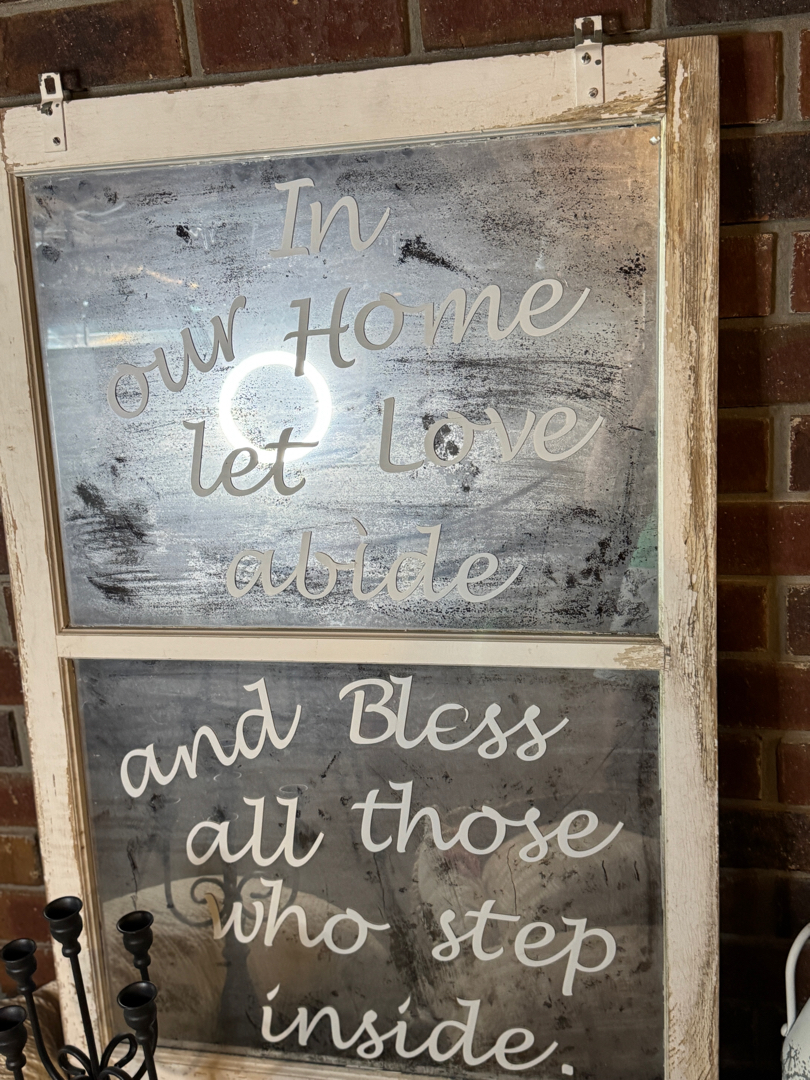 In
our Home
let Love
abide
and Bless
all those
who step
inside.